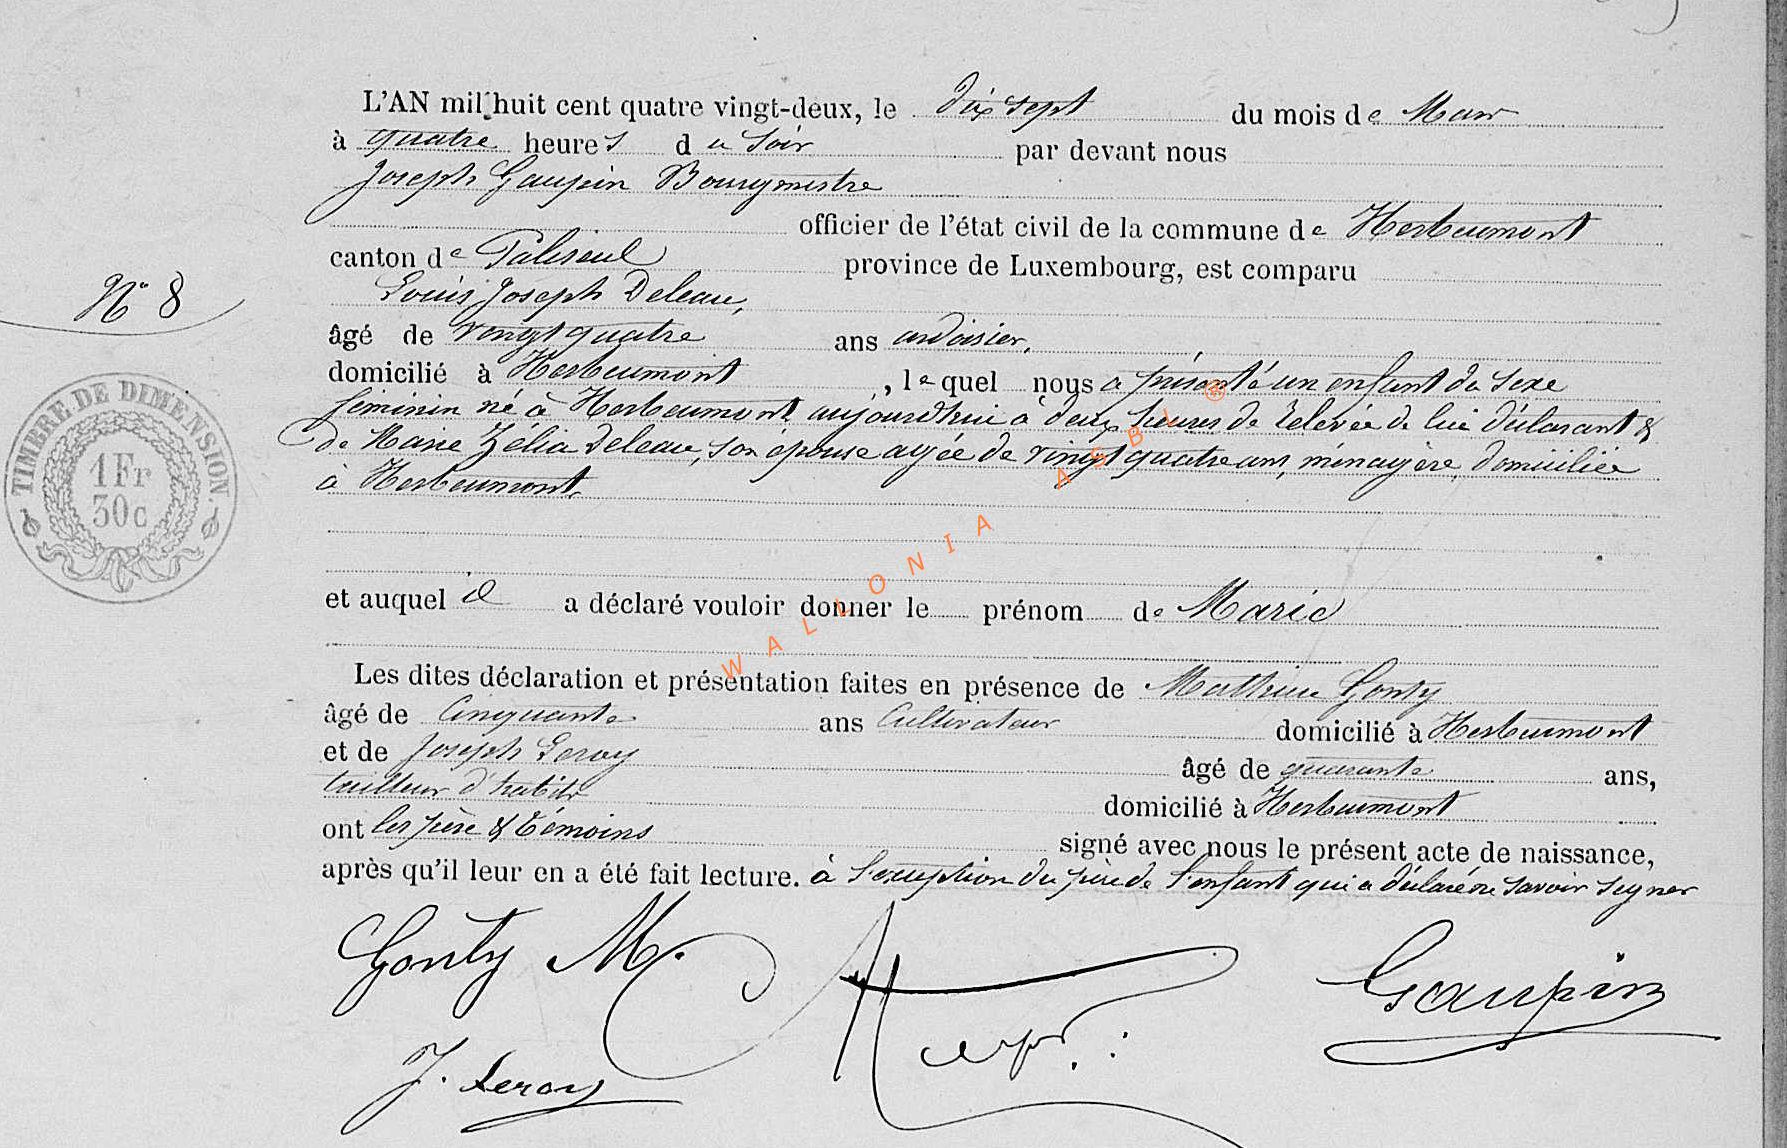 L'AN mil huit cent quatre vingt-deux, le dix sept du mois de Mars
à quatre heures du soir par devant nous
Joseph Gaupin Bourgmestre
officier de l'état civil de la commune de Herbeumont
canton de Paliseul province de Luxembourg, est comparu
Louis Joseph Deleau,
N° 8
âgé de vingt quatre ans ardoisier,
domicilié à Herbeumont, lequel nous a présenté un enfant du sexe
féminin né à Herbeumont aujourd'hui à deux heures de relevée de lui déclarant &
de Marie Zélia Deleau, son épouse agée de vingt quatre ans, ménagère, domiciliée
à Herbeumont.
TIMBRE DE DIMENSION.
1 Fr
30c
et auquel il a déclaré vouloir donner le prénom de Marie
WALLONIA ASBL ®
Les dites déclaration et présentation faites en présence de Mathieu Gonty
âgé de Cinquante ans Cultivateur domicilié à Herbeumont
et de Joseph Leroy âgé de quarante ans,
tailleur d'habits domicilié à Herbeumont
ont les père & témoins signé avec nous le présent acte de naissance,
après qu'il leur en a été fait lecture. à l'exception du père de l'enfant qui a déclaré ne savoir signer
Gonty M. Gaupin
J. Leroy